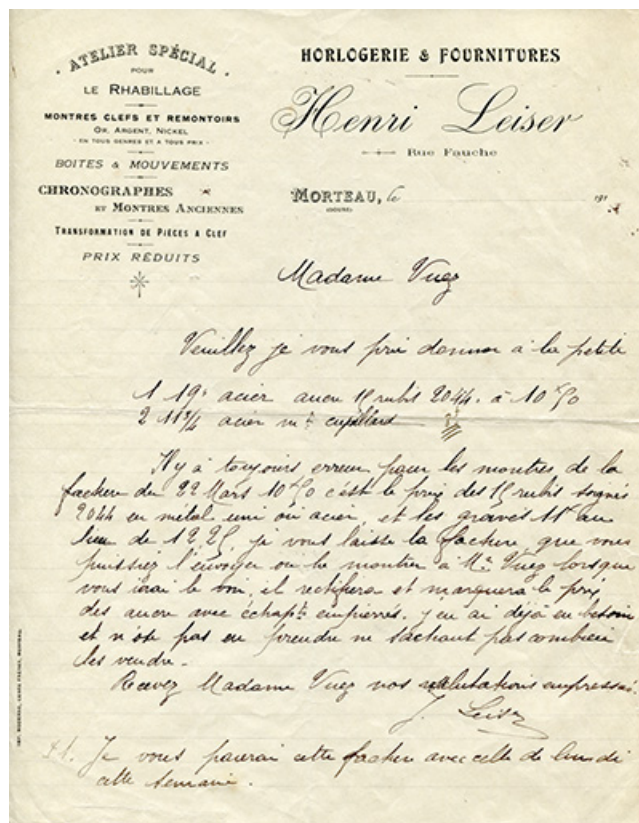 ATELIER SPÉCIAL
POUR
LE RHABILLAGE
MONTRES CLEFS ET REMONTOIRS
OR, ARGENT, NICKEL
- EN TOUS GENRES ET A TOUS PRIX -
BOITES & MOUVEMENTS
CHRONOGRAPHES
ET MONTRES ANCIENNES
TRANSFORMATION DE PIÈCES A CLEF
PRIX RÉDUITS
HORLOGERIE & FOURNITURES
Henri Leiser
Rue Fauche
MORTEAU, le 191
(DOUBS)
Madame Vuez
Veuillez je vous pri donner à la petite
1 19' acier ancre 15 rubis 2044. à 10f50
2 11 3/4 acier mt cupillard
Il y à toujours erreur pour les montres de la
facture du 22 Mars 10f50 c'est le prix des 15 rubis soignés
2044 en métal uni ou acier, et les gravés 11f au
lieu de 12.25, je vous laisse la facture que vous
puissiez l'envoyer ou la montrer à Mr Vuez lorsque
vous irai le voir, il rectifiera et marquera le prix
des ancre avec échapt empierrés. j'en ai déjà eu besoin
et n'ose pas en prendre ne sachant pas combien
les vendre.
Recevez Madame Vuez nos salutations empressées.
J. Leiser
Je vous paierai cette facture avec celle de lundi
cette semaine.